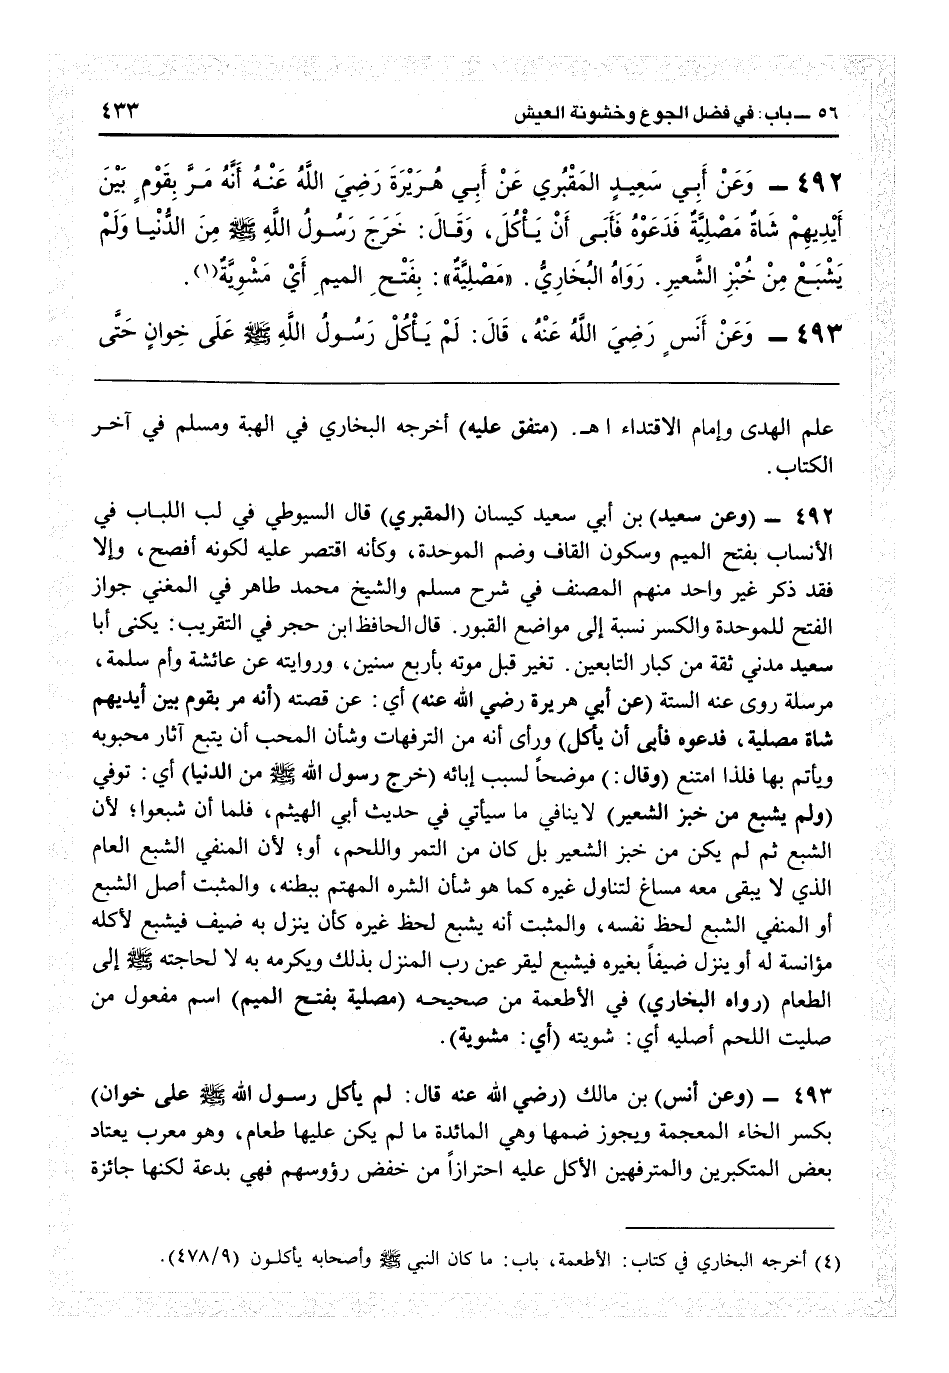 ٥٦ ــ باب: في فضل الجوع وخشونة العيش ٤٣٣
٤٩٢ ــ وَعَنْ أَبِي سَعِيدٍ المَقْبُرِي عَنْ أَبِي هُرَيْرَةَ رَضِيَ اللَّهُ عَنْهُ أَنَّهُ مَرَّ بِقَوْمٍ بَيْنَ
أَيْدِيهِمْ شَاةٌ مَصْلِيَّةٌ فَدَعَوْهُ فَأَبَى أَنْ يَأْكُلَ، وَقَالَ: خَرَجَ رَسُولُ اللَّهِ ﷺ مِنَ الدُّنْيَا وَلَمْ
يَشْبَعْ مِنْ خُبْزِ الشَّعيرِ. رَوَاهُ البُخَارِيُّ. «مَصْلِيَّةٌ»: بِفَتْحِ الميمِ أَيْ مَشْوِيَّةٌ(١).
٤٩٣ ــ وَعَنْ أَنَسٍ رَضِيَ اللَّهُ عَنْهُ، قَالَ: لَمْ يَأْكُلْ رَسُولُ اللَّهِ ﷺ عَلَى خِوانٍ حَتَّى
علم الهدى وإمام الاقتداء ا هـ. (متفق عليه) أخرجه البخاري في الهبة ومسلم في آخر
الكتاب.
٤٩٢ ــ (وعن سعيد) بن أبي سعيد كيسان (المقبري) قال السيوطي في لب اللباب في
الأنساب بفتح الميم وسكون القاف وضم الموحدة، وكأنه اقتصر عليه لكونه أفصح، وإلا
فقد ذكر غير واحد منهم المصنف في شرح مسلم والشيخ محمد طاهر في المغني جواز
الفتح للموحدة والكسر نسبة إلى مواضع القبور. قال الحافظ ابن حجر في التقريب: يكنى أبا
سعيد مدني ثقة من كبار التابعين. تغير قبل موته بأربع سنين، وروايته عن عائشة وأم سلمة،
مرسلة روى عنه الستة (عن أبي هريرة رضي الله عنه) أي: عن قصته (أنه مر بقوم بين أيديهم
شاة مصلية، فدعوه فأبى أن يأكل) ورأى أنه من الترفهات وشأن المحب أن يتبع آثار محبوبه
ويأتم بها فلذا امتنع (وقال:) موضحاً لسبب إبائه (خرج رسول الله ﷺ من الدنيا) أي: توفي
(ولم يشبع من خبز الشعير) لاينافي ما سيأتي في حديث أبي الهيثم، فلما أن شبعوا؛ لأن
الشبع ثم لم يكن من خبز الشعير بل كان من التمر واللحم، أو؛ لأن المنفي الشبع العام
الذي لا يبقى معه مساغ لتناول غيره كما هو شأن الشره المهتم ببطنه، والمثبت أصل الشبع
أو المنفي الشبع لحظ نفسه، والمثبت أنه يشبع لحظ غيره كأن ينزل به ضيف فيشبع لأكله
مؤانسة له أو ينزل ضيفاً بغيره فيشبع ليقر عين رب المنزل بذلك ويكرمه به لا لحاجته ﷺ إلى
الطعام (رواه البخاري) في الأطعمة من صحيحه (مصلية بفتح الميم) اسم مفعول من
صليت اللحم أصليه أي: شويته (أي: مشوية).
٤٩٣ ــ (وعن أنس) بن مالك (رضي الله عنه قال: لم يأكل رسول الله ﷺ على خوان)
بكسر الخاء المعجمة ويجوز ضمها وهي المائدة ما لم يكن عليها طعام، وهو معرب يعتاد
بعض المتكبرين والمترفهين الأكل عليه احترازاً من خفض رؤوسهم فهي بدعة لكنها جائزة
(٤) أخرجه البخاري في كتاب: الأطعمة، باب: ما كان النبي ﷺ وأصحابه يأكلون (٤٧٨/٩).